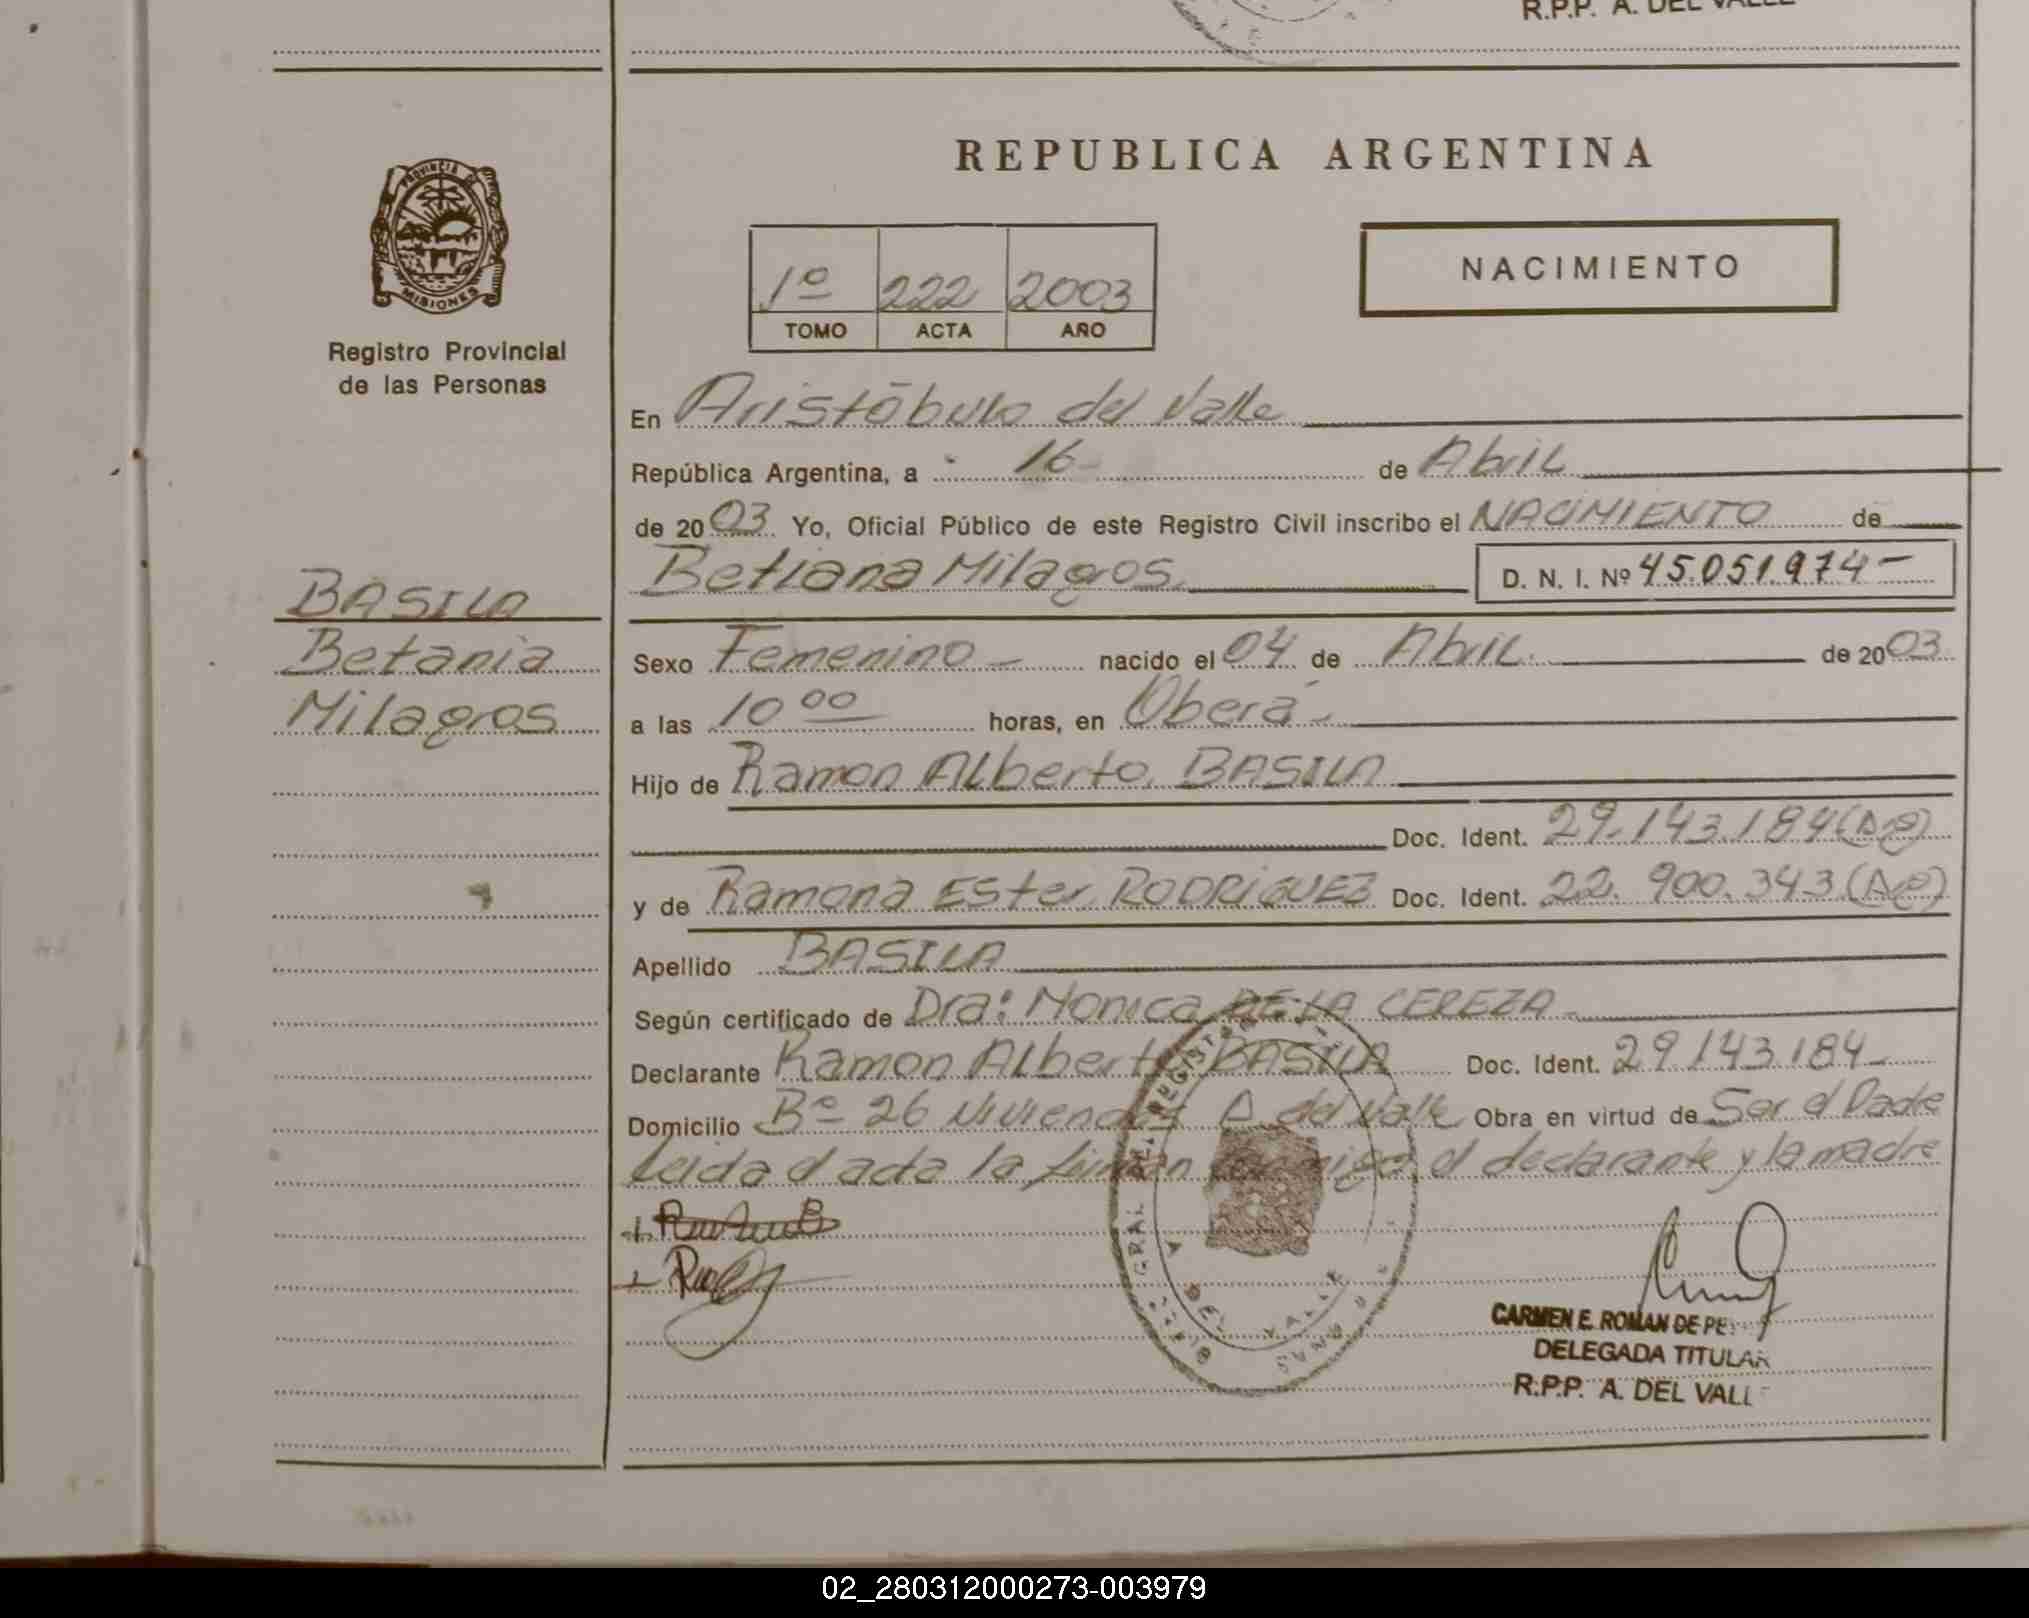 R.P.P. A. DEL VALLE
PROVINCIA DE
MISIONES
Registro Provincial
de las Personas
BASILA
Betania
Milagros
REPUBLICA ARGENTINA
1º 222 2003
TOMO ACTA AÑO
NACIMIENTO
En Aristóbulo del Valle
República Argentina, a 16 de Abril
de 2003 Yo, Oficial Público de este Registro Civil inscribo el NACIMIENTO de
Betiana Milagros D. N. I. Nº 45.051.974-
Sexo Femenino nacido el 04 de Abril de 2003
a las 10 00 horas, en Oberá
Hijo de Ramon Alberto BASILA
Doc. Ident. 29.143.184 (Arg)
y de Ramona Ester RODRIGUEZ Doc. Ident. 22.900.343 (Arg)
Apellido BASILA
Según certificado de Dra: Monica DE LA CEREZA
Declarante Ramon Alberto BASILA Doc. Ident. 29.143.184
Domicilio Bº 26 Viviendas A. del Valle Obra en virtud de Ser el Padre
Leida el acta la firman conmigo el declarante y la madre
CARMEN E. ROMAN DE
DELEGADA TITULAR
R.P.P. A. DEL VALL
02_280312000273-003979